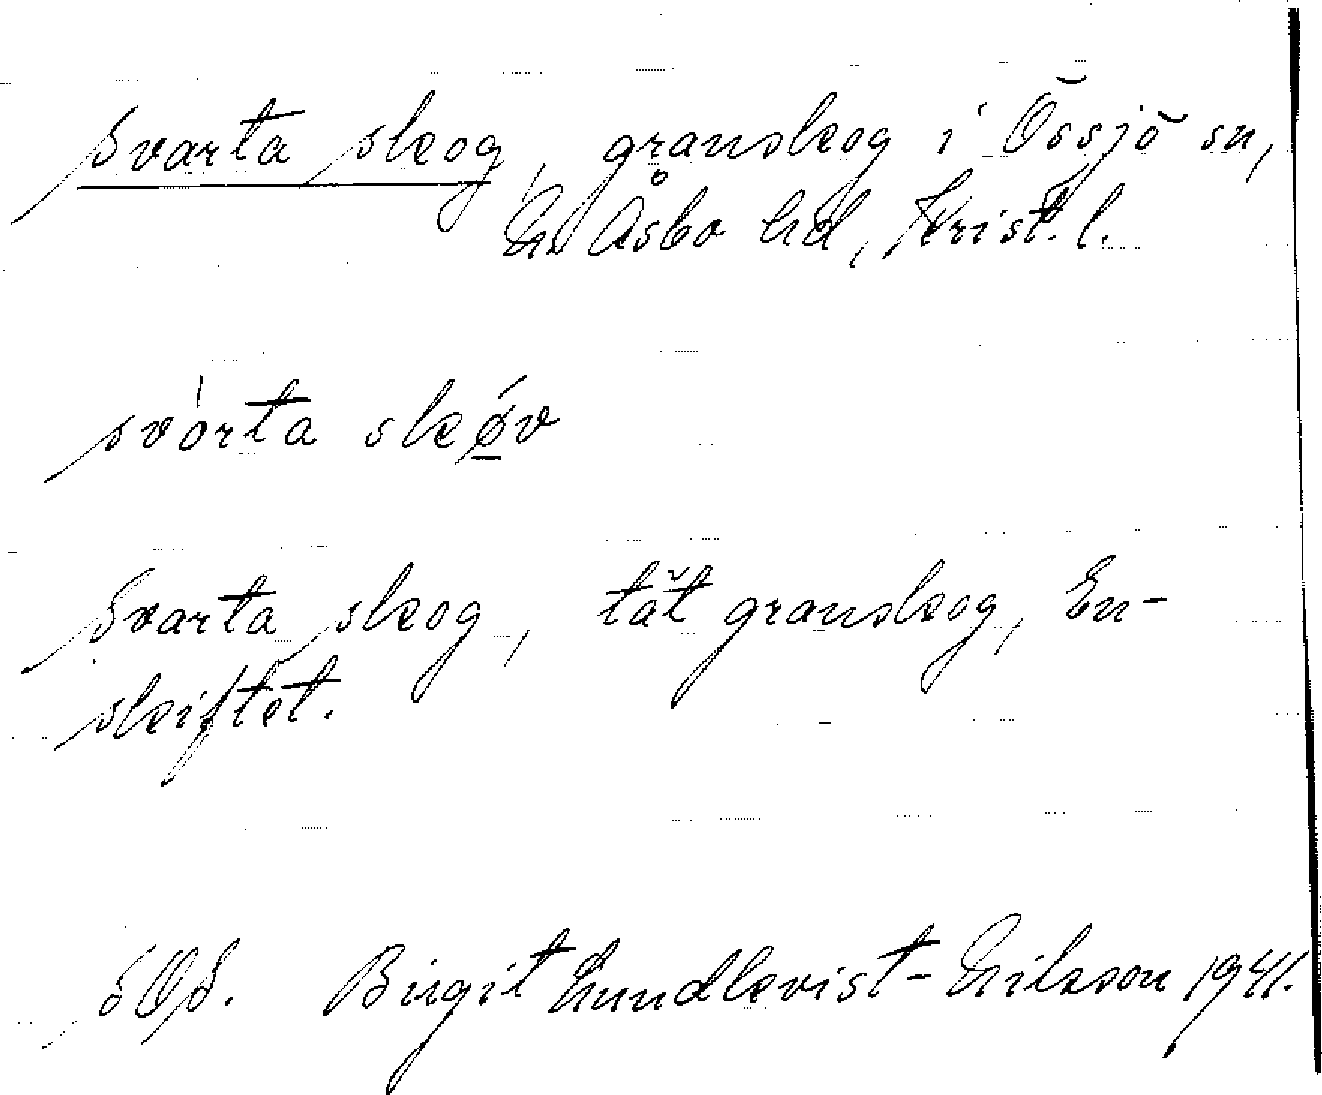 Svarta skog, granskog i Össjö sn,
N. Åsbo hd, Krist. l.
svórta skǿv
Svarta skog, tät granskog, En-
skiftet.
SOS. Birgit Lundkvist-Nilsson 1941.